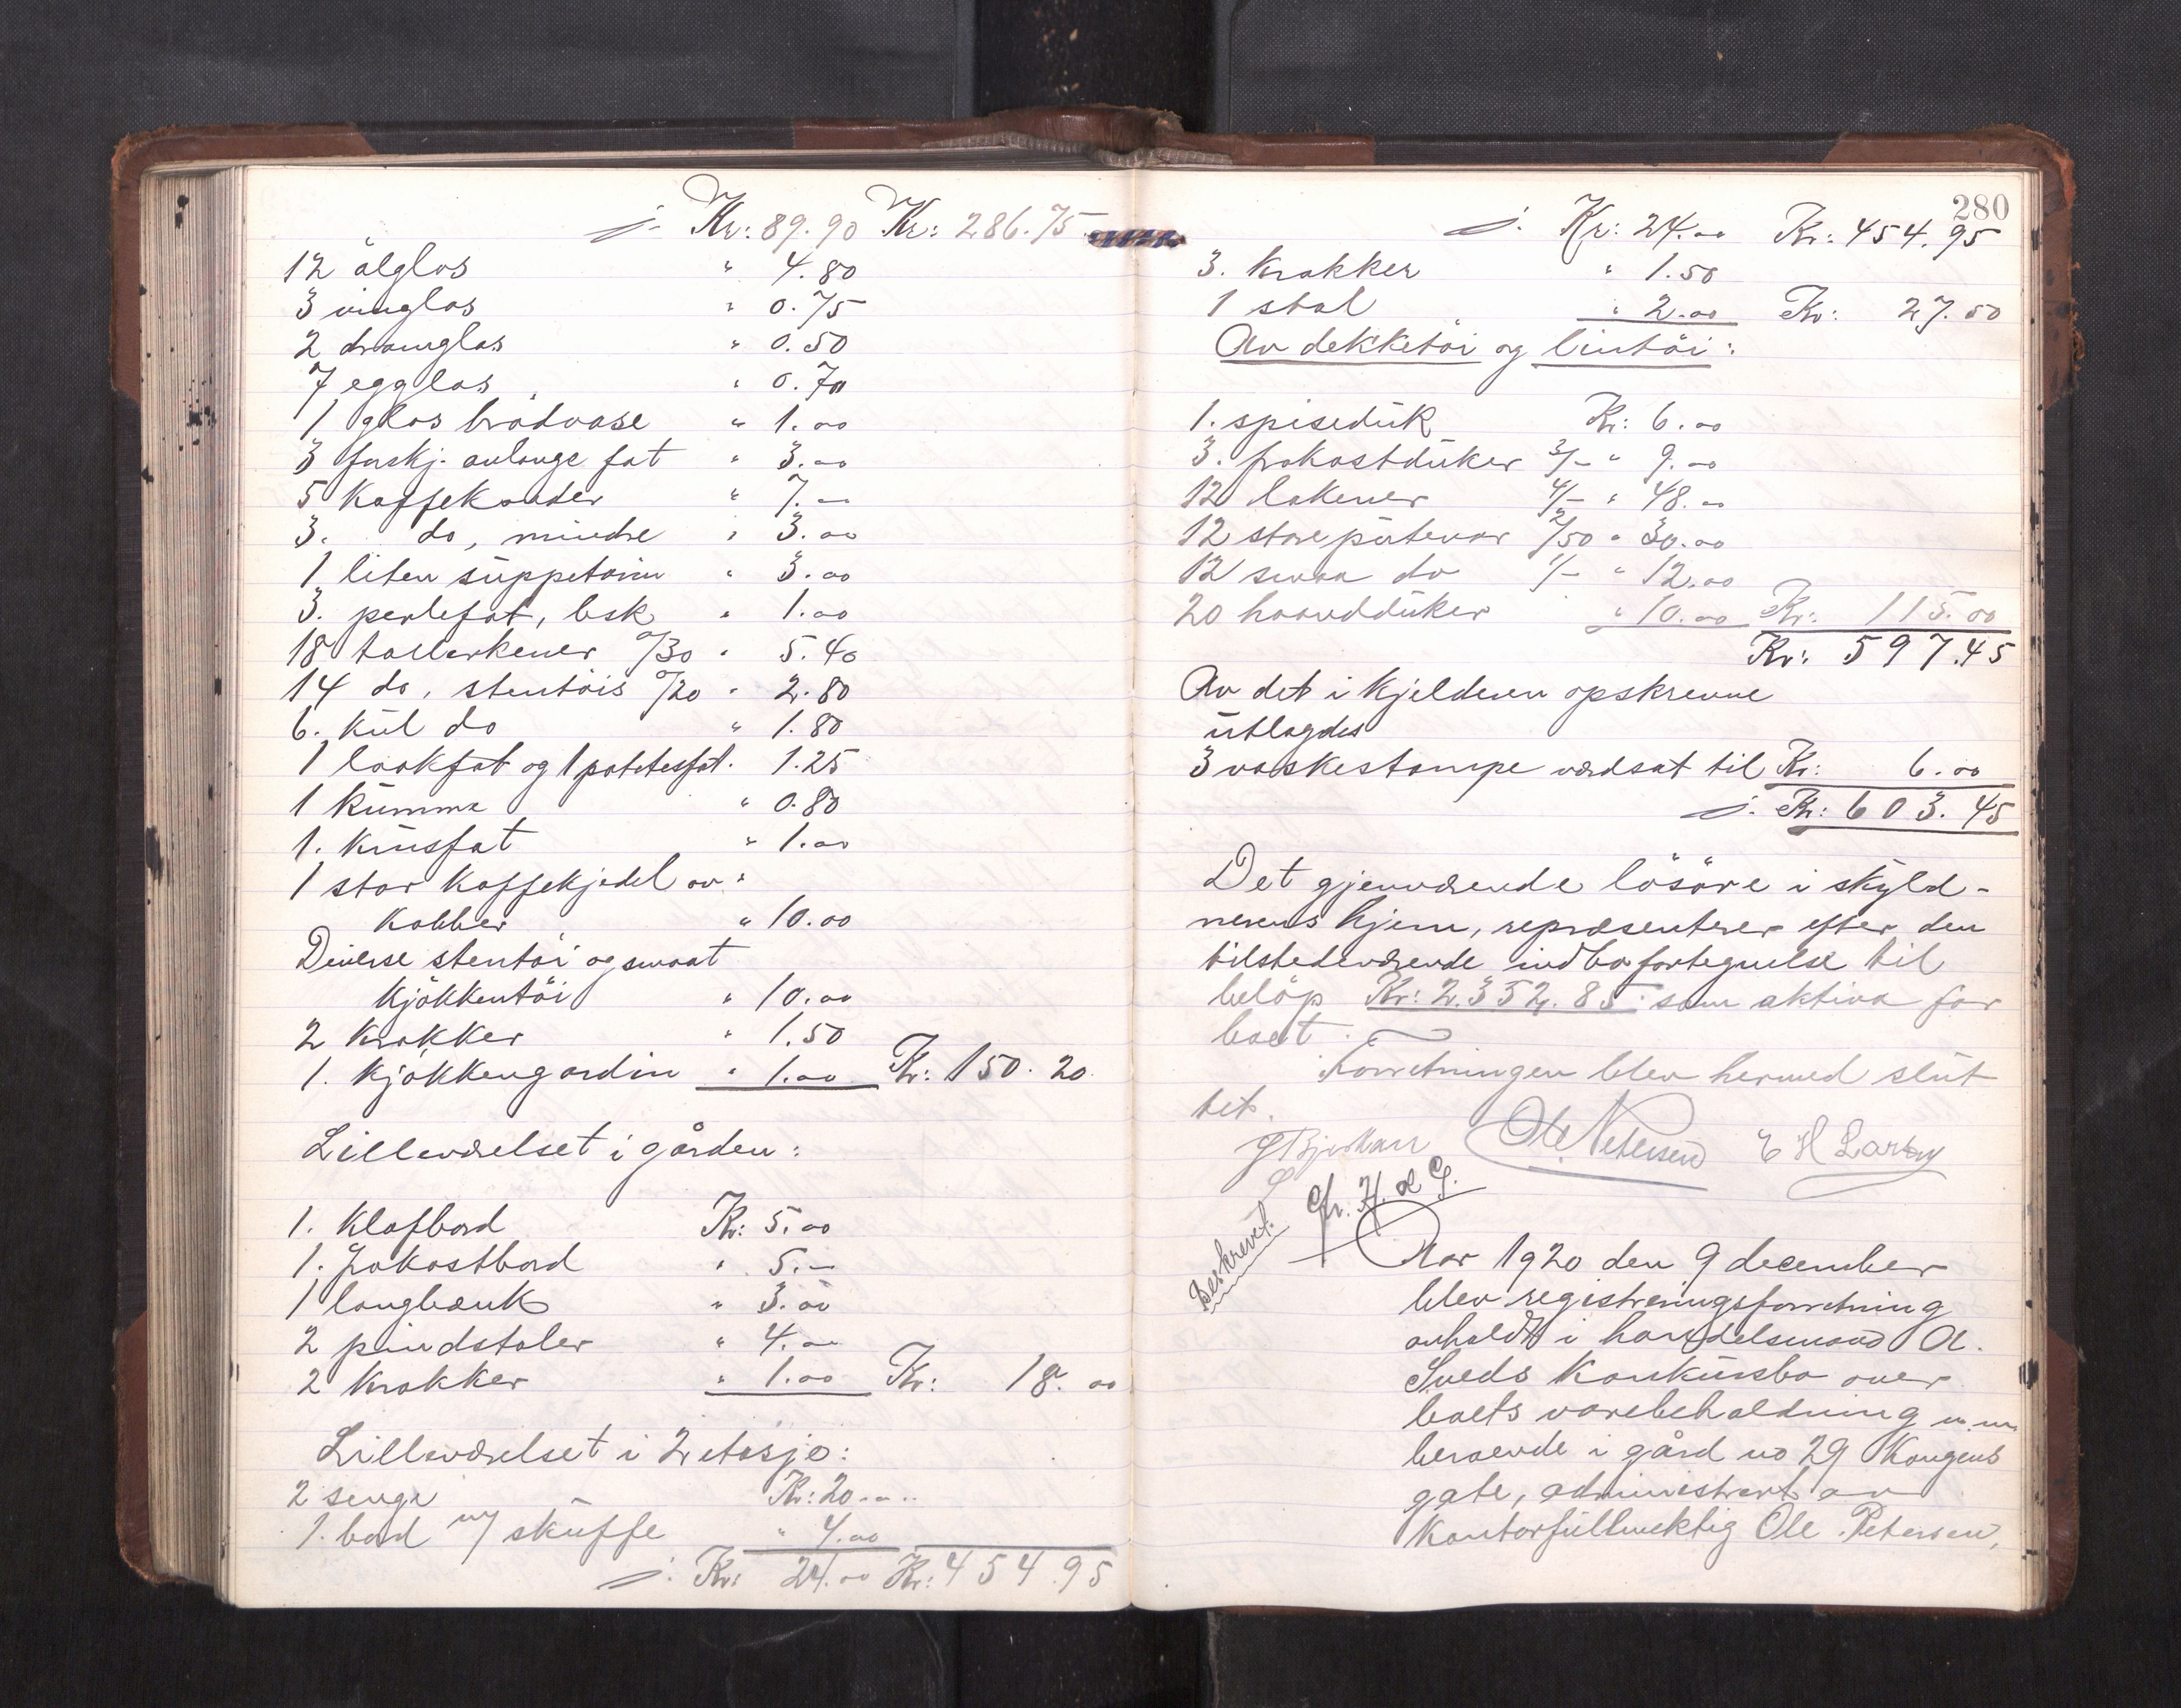 j. Kr: 89.90 Kr: 286.75
12 ölglas " 4.80
3 vinglas " 0.75
2 dramglas " 0.50
7 egglas " 0.70
1 glas brödvase " 1.00
3 forskj. avlange fat " 3.00
5 Kaffekander " 7.–
3. do, mindre " 3.00
1 liten süppeterin " 3.00
3. perlefat, besk " 1.00
18 tallerkener 0/30 " 5.40
14 do, stentöis 0/20 " 2.80
6. Kül do " 1.80
1 laakfat og 1 potetesfat. 1.25
1 Kümma " 0.80
1. Krüsfat " 1.00
1 stor Kaffekjedel av
Kobber " 10.00
Diverse stentöi og smaat
Kjökkentöi " 10.00
2 Krakker " 1.50
1. Kjökkengardin " 1.00 Kr: 150.20
Lilleværelset i gården:
1. Klafbord Kr: 5.00
1. frokostbord " 5.–
1 langbænk " 3.00
2 pindstoler " 4.00
2 Krakker " 1.00 Kr: 18.00
Lilleværelset i 2 etasje:
2 senge Kr: 20.00
1. bord m/ sküffe " 4.00
j. Kr: 24.00 Kr: 454.95
280
j. Kr: 24.00 Kr: 454.95
3. Krakker " 1.50
1 stol " 2.00 Kr: 27.50
Av dekketöi og lintöi:
1. spisedük Kr: 6.00
3. frokostdüker 3/– " 9.00
12 lakener 4/– " 48.00
12 store pütevar 2/50 " 30.00
12 smaa do 1/– " 12.00
20 haandduker " 10.00 Kr: 115.00
Kr: 597.45
Av det i Kjelderen opskrevne
ütlagdes
3 vaskestampe værdsat til Kr: 6.00
j. Kr: 603.45
Det gjenværende lösöre i skyld-
nerens hjem, repræsenterer efter den
tilstedeværende indbofortegnelse til
belöp Kr: 2.352.85 som aktiva for
boet.
Forretningen blev hermed slüt
tet.
Ole Petersen E H Larsen
Beskrevet. Gr. H. & G.
Aar 1920 den 9 december
blev registreringsforretning
avholdt i handelsmand A.
Sveds Konkürsbo over
boets varebeholdning m.m.
beroende i gård no 29 Kongens
gate, administrert av
Kontorfüllmektig Ole Petersen,